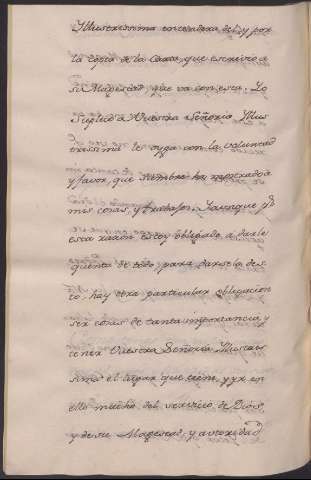 Illustrissima entendera del, y por
la copia de la carta, que escrivio a
su Magestad que va con esta. Lo
Suplico a Vuestra Señoria Illus
trissima les oyga con la voluntad
y favor, que siempre ha mostrado a
mis cosas, y trabajos. Y aunque por
esta razon estoy obligado a darle
quenta de todo, para darsela des
to, hay otra particular obligacion
ser cosas de tanta importancia, y
tener Vuestra Señoria Illustris
sima el lugar que tiene, y yr en
ello mucho del servicio de Dios,
y de su Magestad, y autoridad